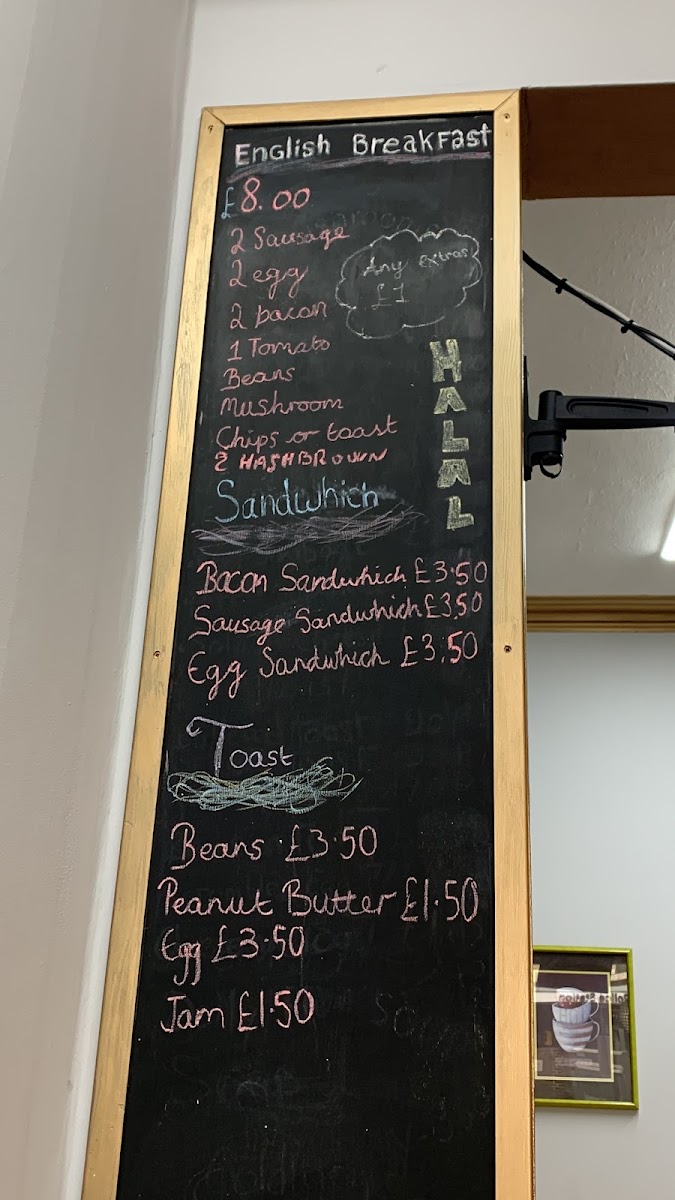 English Breakfast
£8.00
2 Sausage
2 egg
2 bacon
1 Tomato
Beans
Mushroom
Chips or toast
2 HASHBROWN
Any extras
£1
HALAL
Sandwhich
Bacon Sandwhich £3.50
Sausage Sandwhich £3.50
Egg Sandwhich £3.50
Toast
Beans £3.50
Peanut Butter £1.50
Egg £3.50
Jam £1.50